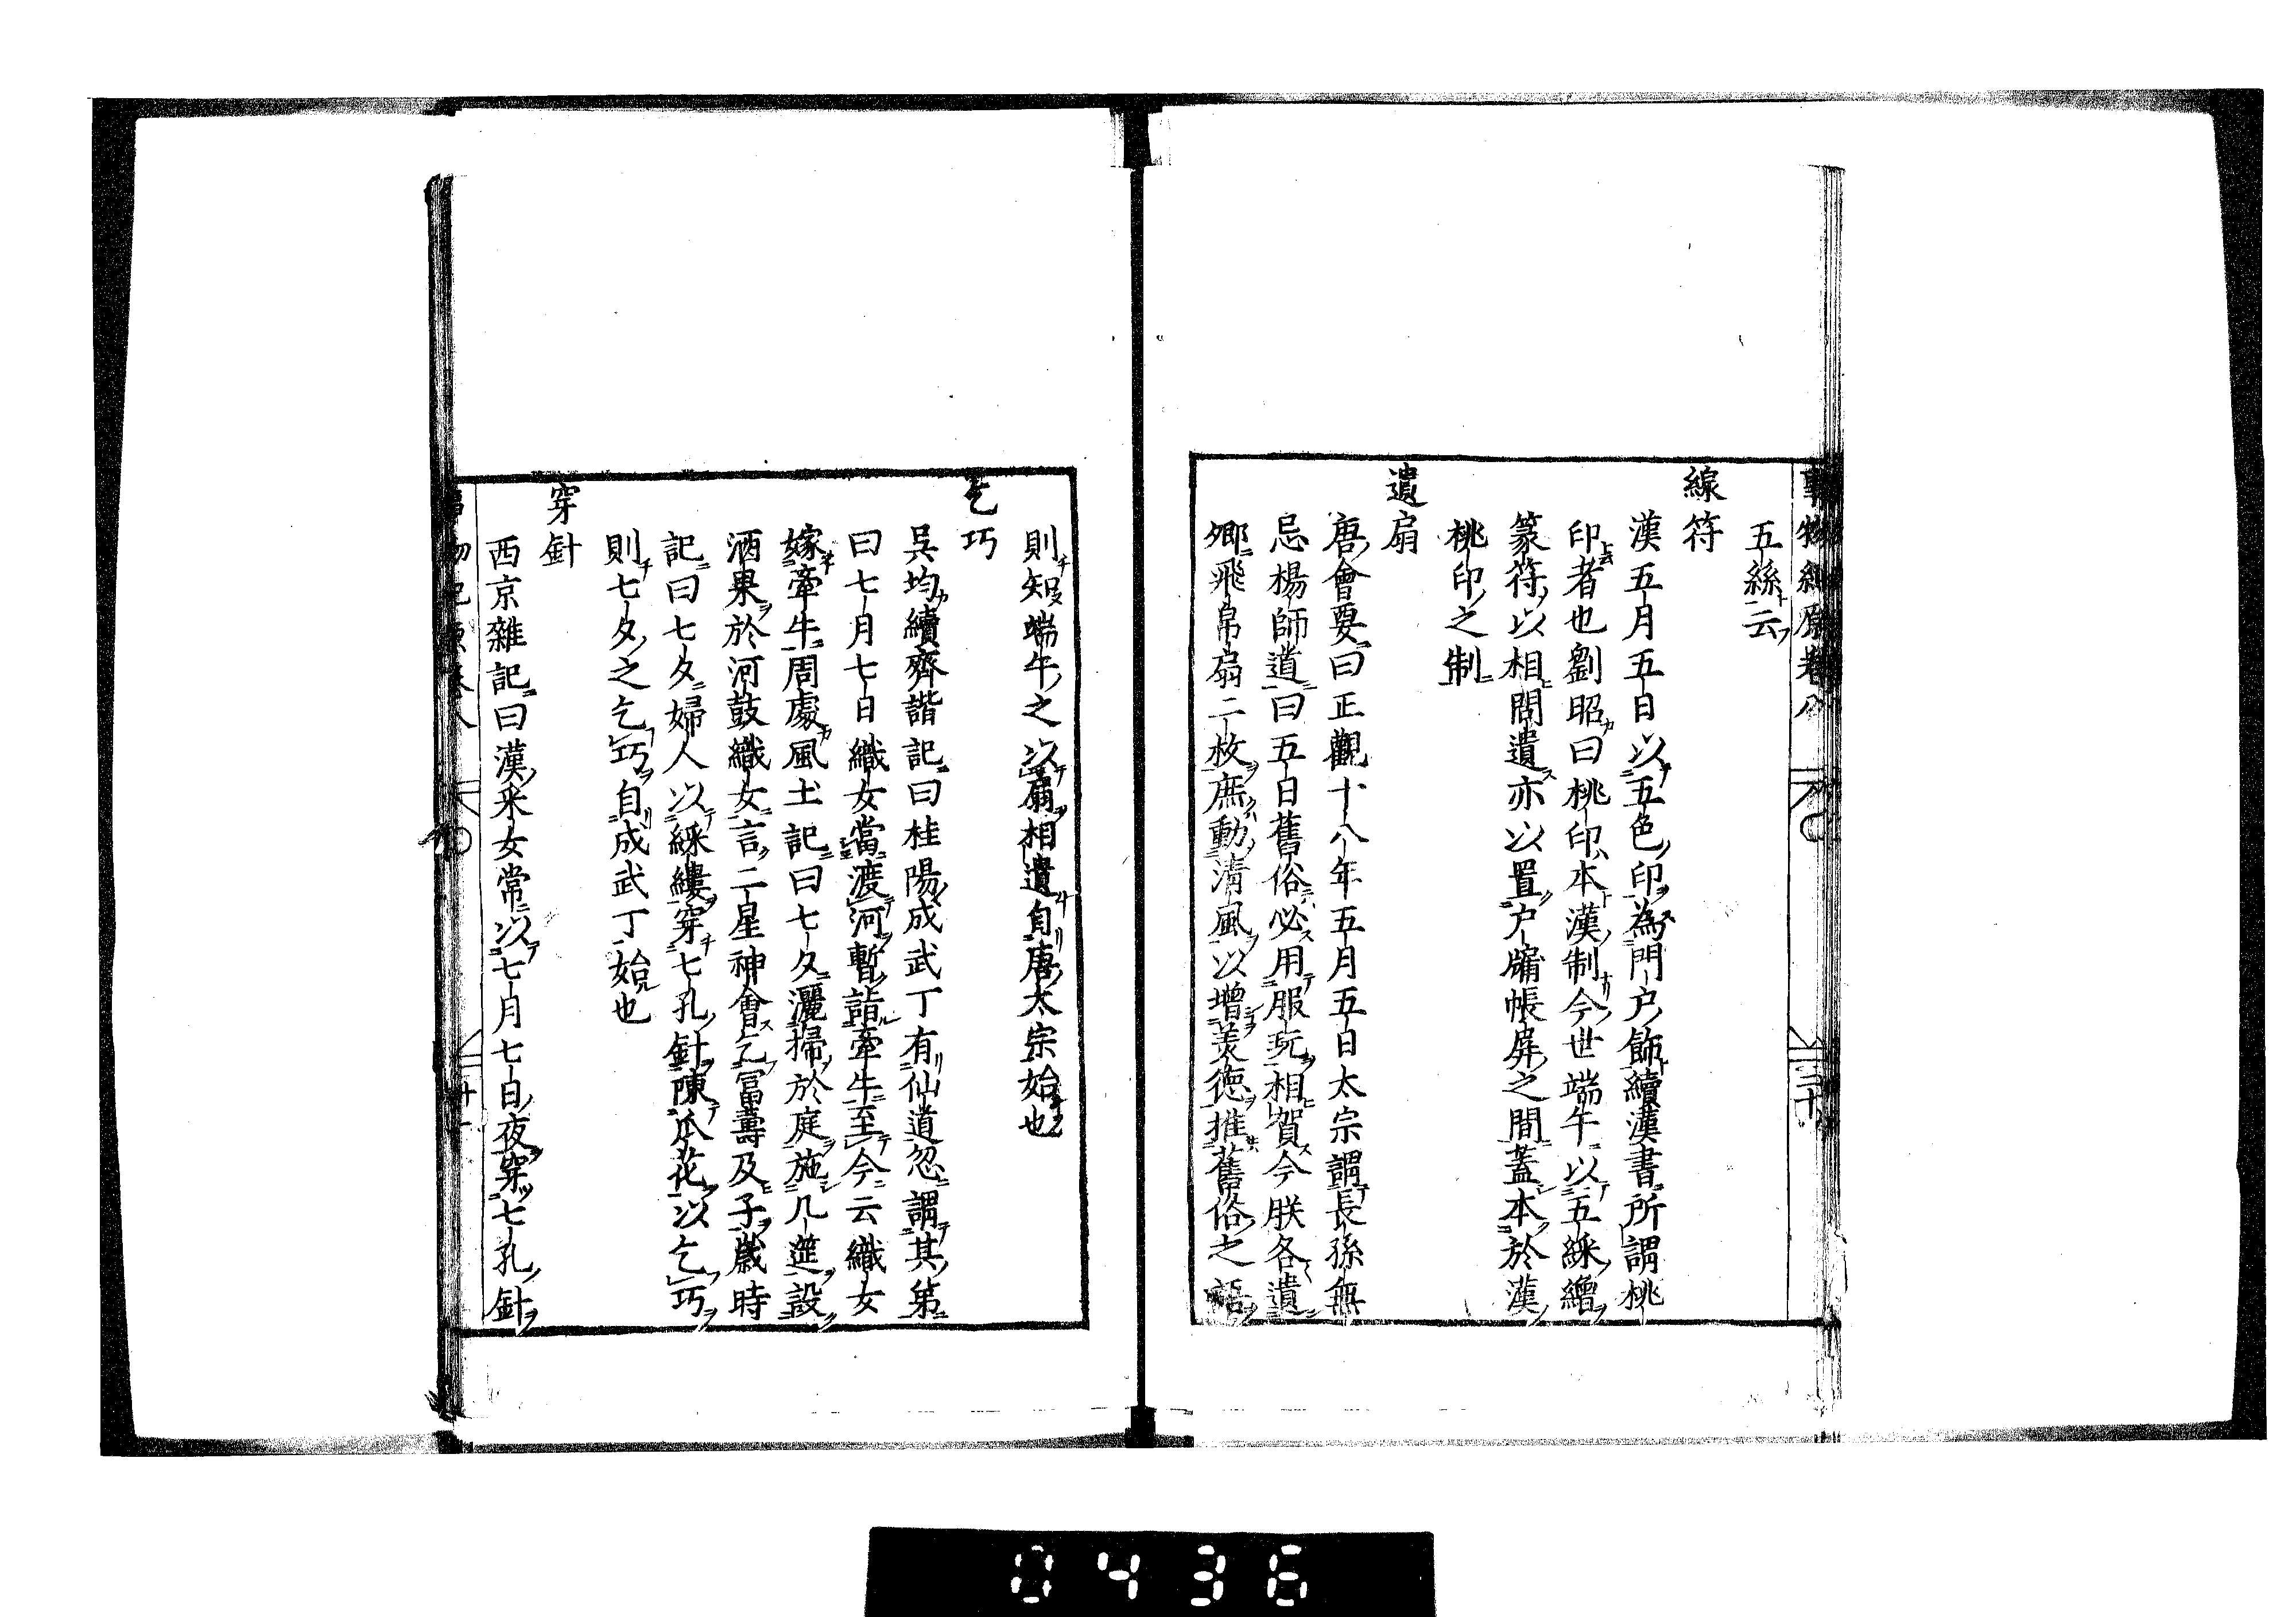 事物紀原卷八
三十
五絲云
線符
漢五月五日以五色印為門户飾續漢書所謂桃
印者也劉昭曰桃印本漢制今世端午以五綵繒
篆符以相問遺亦以置户牖帳屏之間蓋本於漢
桃印之制
遺扇
唐會要曰正觀十八年五月五日太宗謂長孫無
忌楊師道曰五日舊俗必用服玩相賀今朕各遺
卿飛帛扇二枚庶動清風以增美德推舊俗之語
則知端午之以扇相遺自唐太宗始也
乞巧
吳均續齊諧記曰桂陽成武丁有仙道忽謂其第
曰七月七日織女當渡河暫詣牽牛至今云織女
嫁牽牛周處風土記曰七夕灑掃於庭施几筵設
酒果於河鼓織女言二星神會乞富壽及子歲時
記曰七夕婦人以綵縷穿七孔針陳瓜花以乞巧
則七夕之乞巧自成武丁始也
穿針
西京雜記曰漢釆女常以七月七日夜穿七孔針
事物紀原卷八
0436